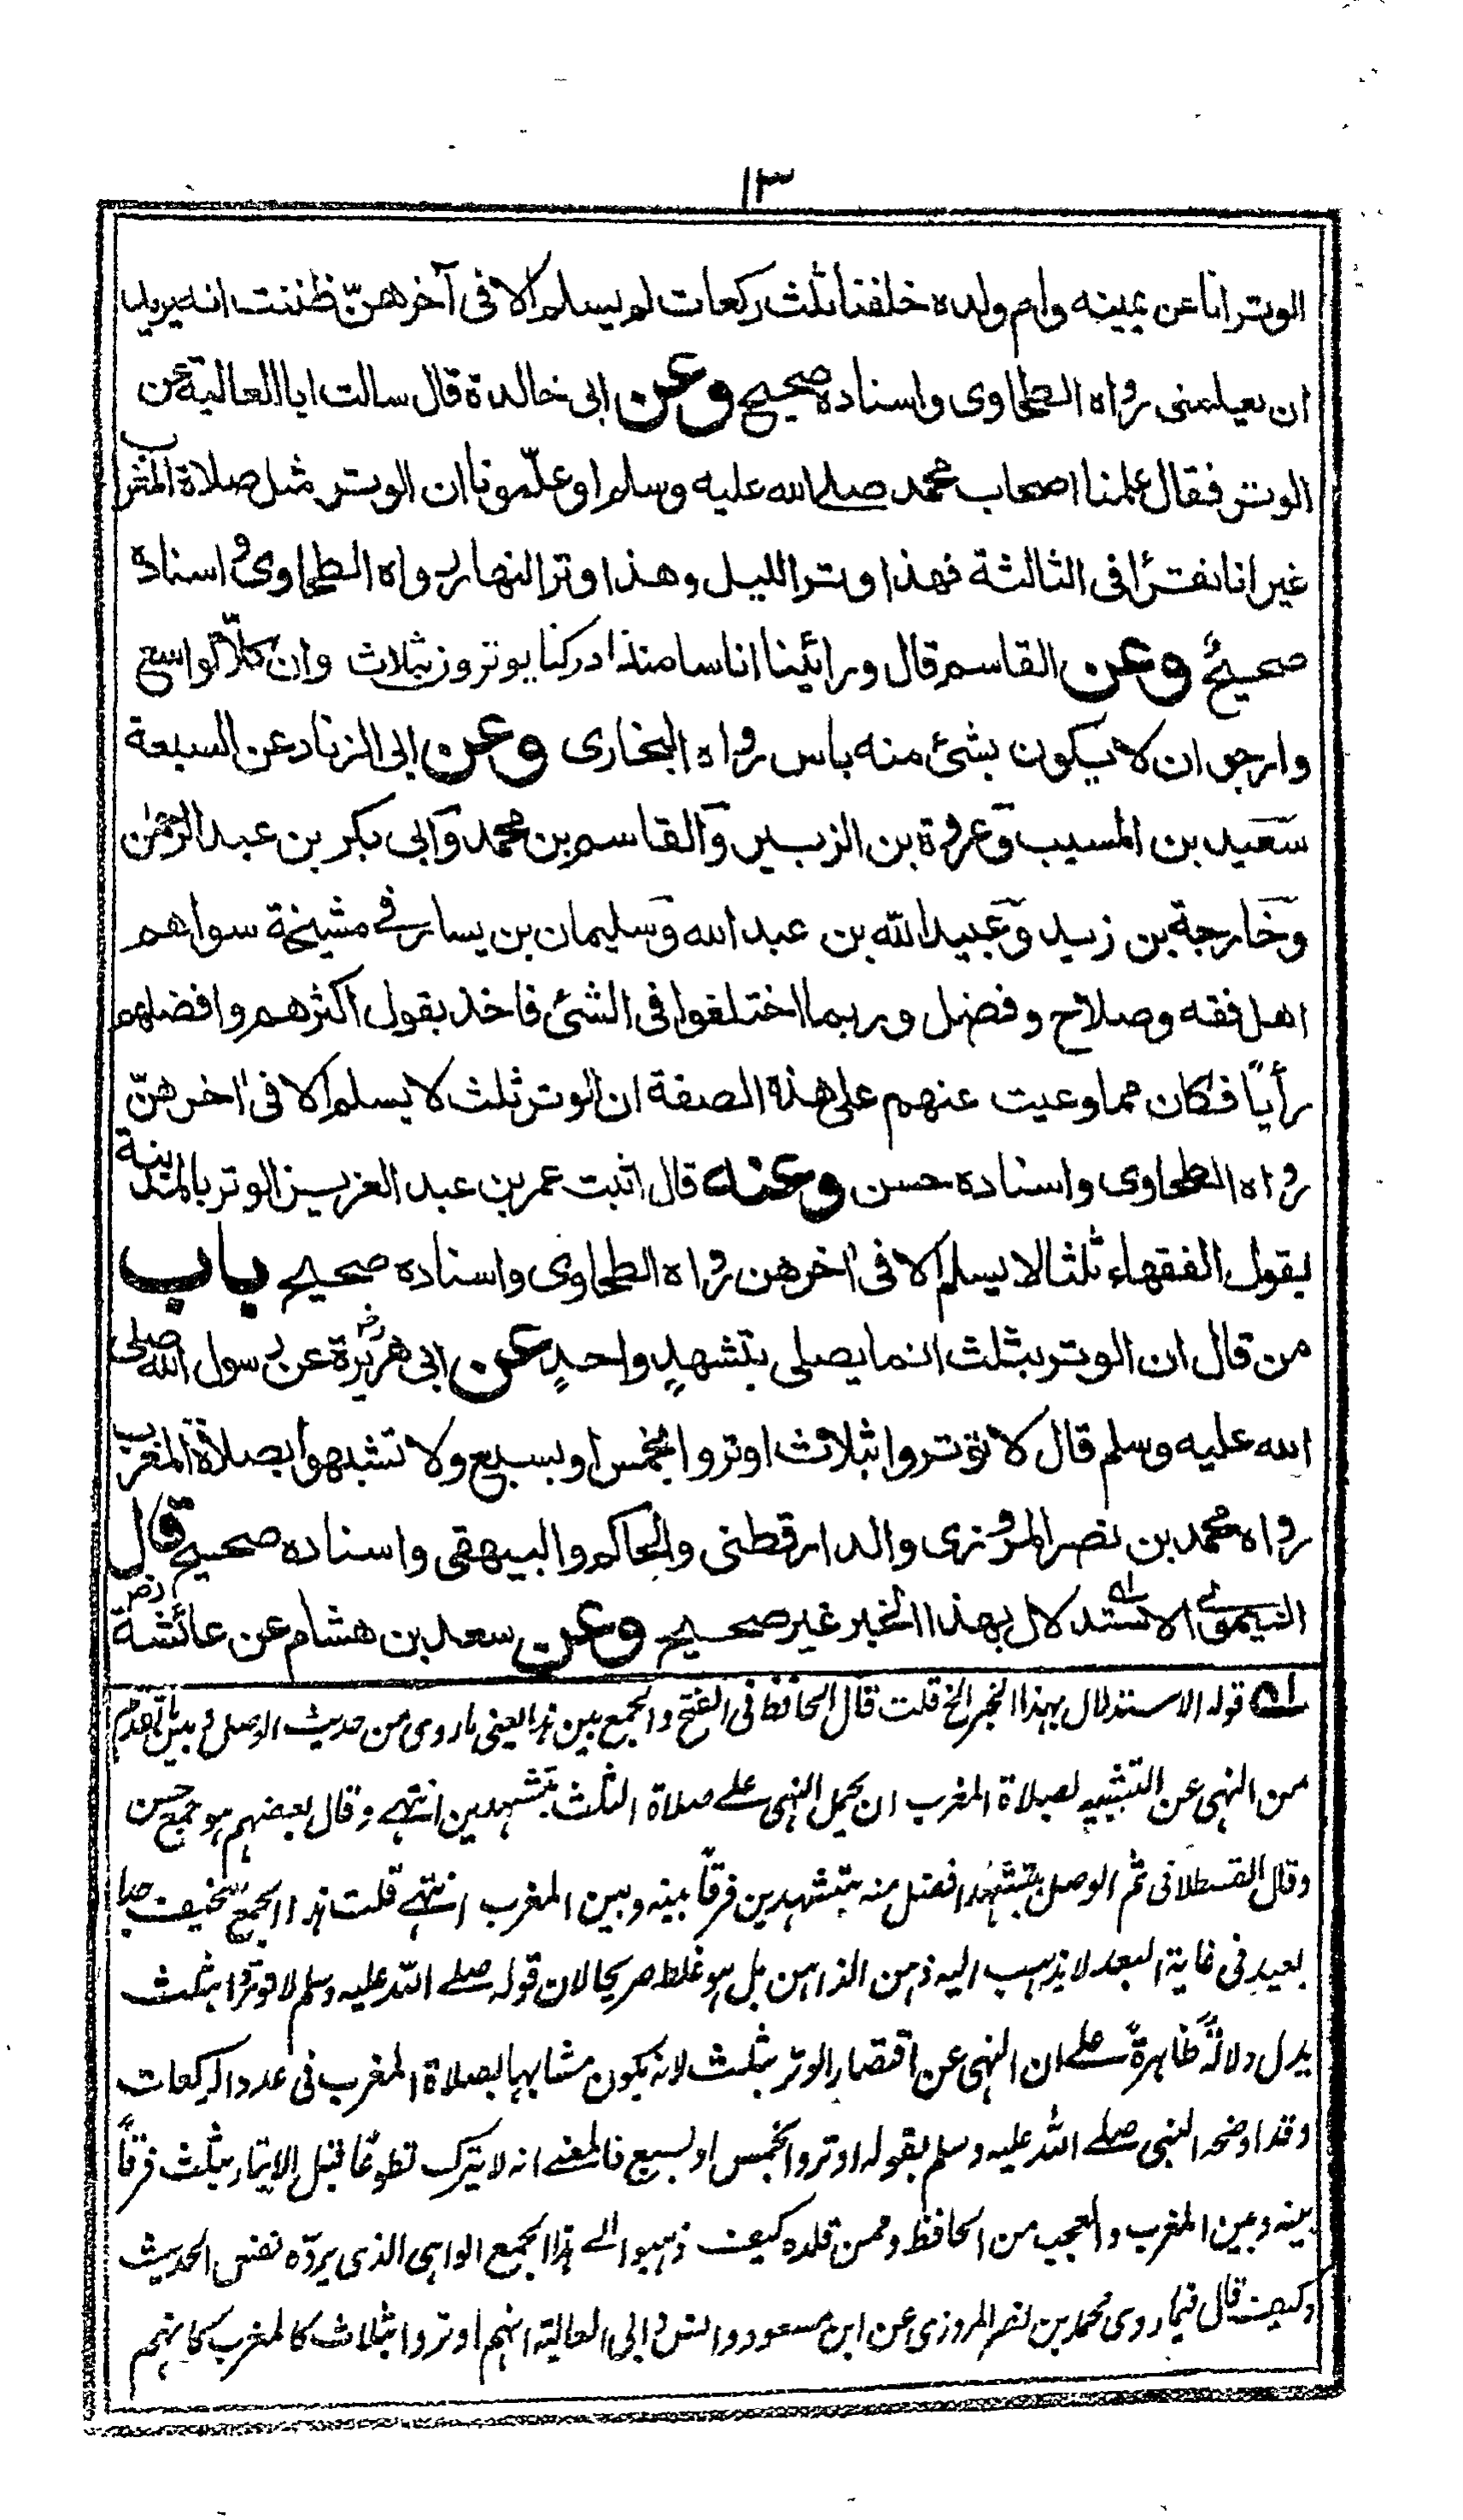 ١٣
الوتر انا عن يمينه وام ولده خلفنا ثلث ركعات لم يسلم الا فى آخرهنّ ظننت انه يريد
ان يعلمنى رواه الطحاوى واسناده صحيح وعن ابى خالدة قال سالت ابا العالية عن
الوتر فقال علمنا اصحاب محمد صلى الله عليه وسلم او علّمونا ان الوتر مثل صلاة المغرب
غير انا نقرأ فى الثالثة فهذا وتر الليل وهذا وتر النهار رواه الطحاوى واسناده
صحيح وعن القاسم قال ورائينا اناسا منذ ادركنا يوترون بثلاث وان كلّا لواسع
وارجو ان لا يكون بشئ منه باس رواه البخارى وعن ابى الزناد عن السبعة
سعيد بن المسيب وعروة بن الزبير والقاسم بن محمد وابى بكر بن عبد الرحمٰن
وخارجة بن زيد وعبيد الله بن عبد الله وسليمان بن يسار فى مشيخة سواهم
اهل فقه وصلاح وفضل وربما اختلفوا فى الشئ فاخذ بقول اكثرهم وافضلهم
رأيًا فكان مما وعيت عنهم على هذه الصفة ان الوتر ثلث لا يسلم الا فى اخرهنّ
رواه الطحاوى واسناده حسن وعنه قال اثبت عمر بن عبد العزيز الوتر بالمدينة
بقول الفقهاء ثلثا لا يسلم الا فى اخرهن رواه الطحاوى واسناده صحيح باب
من قال ان الوتر بثلث انما يصلى بتشهدٍ واحدٍ عن ابى هريرة رض عن رسول الله صلى
الله عليه وسلم قال لا توتروا بثلاث اوتروا بخمس او بسبع ولا تشبهوا بصلاة المغرب
رواه محمد بن نصر المروزى والدارقطنى والحاكم والبيهقى واسناده صحيح قال
النيموى الاستدلال بهذا الخبر غير صحيح وعن سعد بن هشام عن عائشة رض
قوله الاستدلال بهذا الخبر الخ قلت قال الحافظ فى الفتح والجمع بين هذا يعنى ما روى من حديث الوصل وبين ما تقدم
من النهى عن التشبيه لصلاة المغرب ان يحمل النهى على صلاة الثلث بتشهدين انتهى وقال بعضهم هو جمع حسن
وقال القسطلانى ثم الوصل بتشهد افضل منه بتشهدين فرقًا بينه وبين المغرب انتهى قلت هذا الجمع سخيف جدا
بعيد فى غاية البعد لا يذهب اليه ذهن الذاهن بل هو غلط صريحا لان قوله صلى الله عليه وسلم لا توتروا بثلث
يدل دلالةً ظاهرةً على ان النهى عن اقتصار الوتر بثلث لانه يكون مشابها لصلاة المغرب فى عدد الركعات
وقد اوضحه النبى صلى الله عليه وسلم بقوله اوتروا بخمس او بسبع فالمعنى انه لا يترك تطوعًا قبل الايتار بثلث فرقًا
بينه وبين المغرب والعجب من الحافظ وممن قلده كيف ذهبوا الى هذا الجمع الواهى الذى يردّه نفس الحديث
وكيف قال فيما روى محمد بن نصر المروزى عن ابن مسعود وانس وابى العالية انهم اوتروا بثلاث كالمغرب كانهم